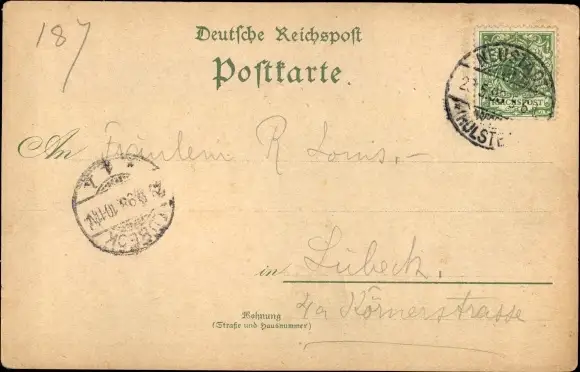 187
Deutsche Reichspost
Postkarte.
NEUSTADT
(HOLSTEIN)
REICHSPOST
An Fräulein R Louis.-
LÜBECK
in Lübeck.
4a Körnerstrasse
Wohnung
(Straße und Hausnummer)